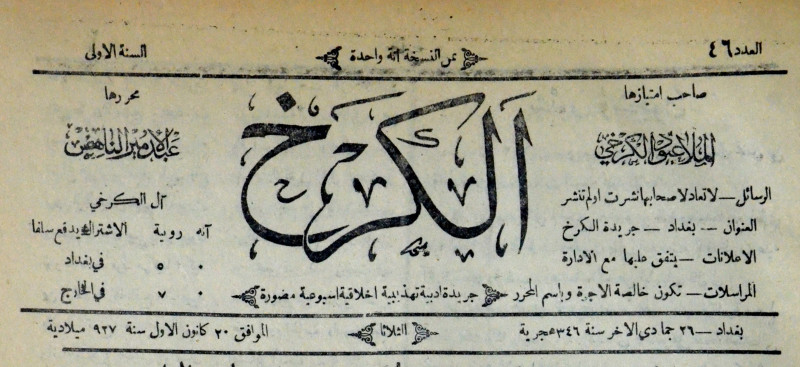 العدد ٤٦
ثمن النسخة آنة واحدة
السنة الاولى
صاحب امتيازها
الملا عبود الكرخي
الكرخ
محررها
عبد الامير الناهض
الرسائل — لا تعاد لاصحابها نشرت او لم تنشر
العنوان — بغداد — جريدة الكرخ
الاعلانات — يتفق عليها مع الادارة
المراسلات — تكون خالصة الاجرة وباسم المحرر
آل الكرخي
آنه روبية الاشتراك يدفع سلفا
٠ ٥ في بغداد
٠ ٧ في الخارج
جريدة ادبية تهذيبية اخلاقية اسبوعية مصورة
بغداد — ٢٦ جمادي الاخر سنة ٣٤٦ هجرية
الثلاثا
الموافق ٢٠ كانون الاول سنة ٩٢٧ ميلادية